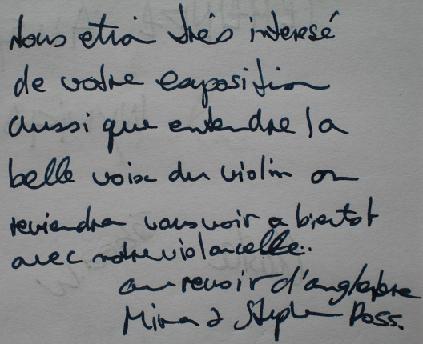 Nous etion très interesé
de votre exposition
aussi que entendre la
belle voix du violin on
reviendra vous voir a bientot
avec notre violoncelle..
au revoir d'angletere
Mima & Stephen Doss.